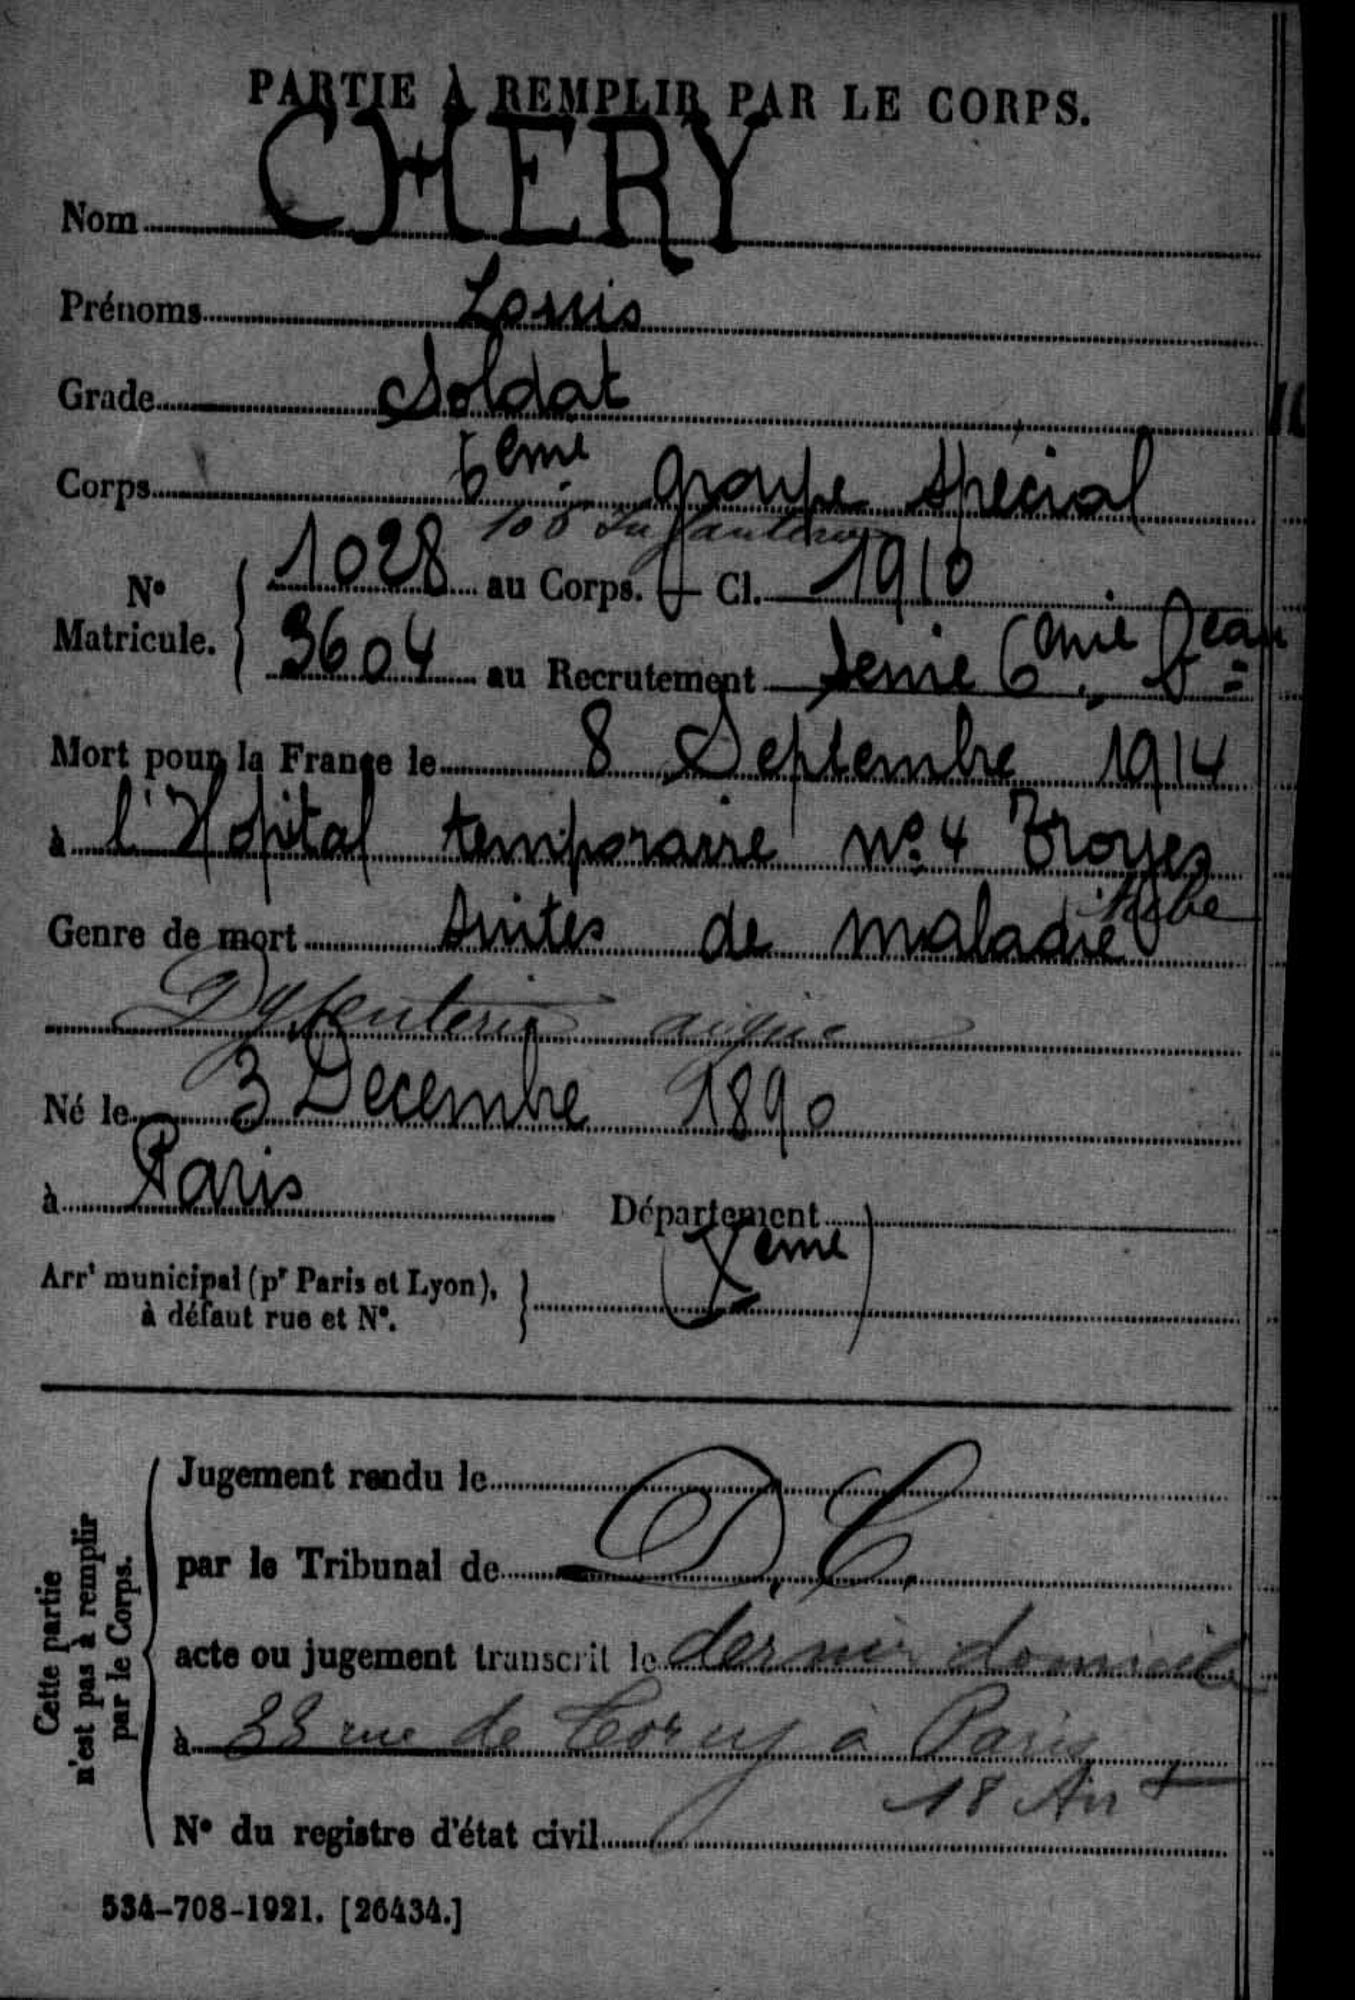 PARTIE À REMPLIR PAR LE CORPS.
Nom CHERY
Prénoms Louis
Grade Soldat
Corps 6eme groupe spécial
Infanterie
No Matricule. 1028 au Corps. – Cl. 1910
3604 au Recrutement Seine 6eme Beau
Mort pour la France le 8 Septembre 1914
à l'Hopital temporaire no 4 Troyes
Aube
Genre de mort suites de maladie
Dysenterie aigue
Né le 3 Decembre 1890
à Paris Département
Arrt municipal (pr Paris et Lyon), à défaut rue et No. (Xeme)
Cette partie n'est pas à remplir par le Corps.
Jugement rendu le
par le Tribunal de D. C.
acte ou jugement transcrit le dernier domicile
à 33 rue de à Paris
18 Arrt
No du registre d'état civil
534-708-1921. [26434.]